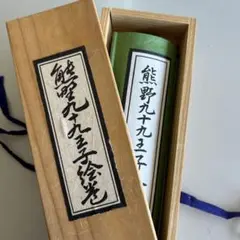 熊野九十九王子絵巻
熊野九十九王子